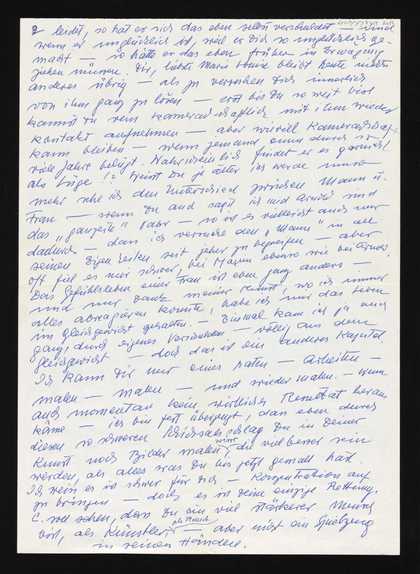 2 leidet, so hat er sich das eben selbst verschuldet – und
wenn er unglücklich ist, weil er Dich so unglücklich ge-
macht – so hätte er das eben früher in Erwägung
ziehen müssen. Dir, liebste Maria Louise bleibt heute nichts
anderes übrig – als zu versuchen Dich innerlich
von ihm ganz zu lösen – erst bis Du so weit bist
kannst Du rein kameradschaftlich mit ihm wieder
Kontakt aufnehmen – aber wieviel Kameradschaft
kann bleiben – wenn jemand einen durch so
viele Jahre belügt. Wahrscheinlich findet er es garnicht
als Lüge! Weisst Du je älter ich werde umso
mehr sehe ich den Unterschied zwischen Mann u.
Frau – wenn Du auch sagst ich und Arnulf sind
das "ganzeste" Paar – so ist es vielleicht auch nur
dadurch – dass ich versuche den "Mann" in all
seinen Eigenheiten seit jeher zu begreifen – aber
oft fiel es mir schwer, bei Mann ebenso wie bei Arnulf.
Das Gefühlsleben einer Frau ist eben ganz anders –
und nur dank meiner Kunst, wo ich immer
alles abreagieren konnte, habe ich mir das Leben
im Gleichgewicht gehalten. – Einmal kam ich ja auch
ganz durch eigenes Verschulden – völlig aus dem
Gleichgewicht – doch das ist ein anderes Kapitel
Ich kann Dir nur eines raten – Arbeiten –
malen – malen – und wieder malen. – Wenn
auch momentan kein wirkliches Resultat heraus
käme – ich bin fest überzeugt, dass eben durch
diesen so schweren Schicksalsschlag Du in Deiner
Kunst noch Bilder malen wirst, die viel besser sein
werden, als alles was Du bis jetzt gemalt hast
Ich weiss es ist schwer für Dich – Konzentration auf-
zu bringen – doch es ist Deine einzige Rettung.
E. soll sehen, dass Du ein viel stärkerer Mensch
bist, als Künstler als Mensch – aber nicht ein Spielzeug
in seinen Händen.